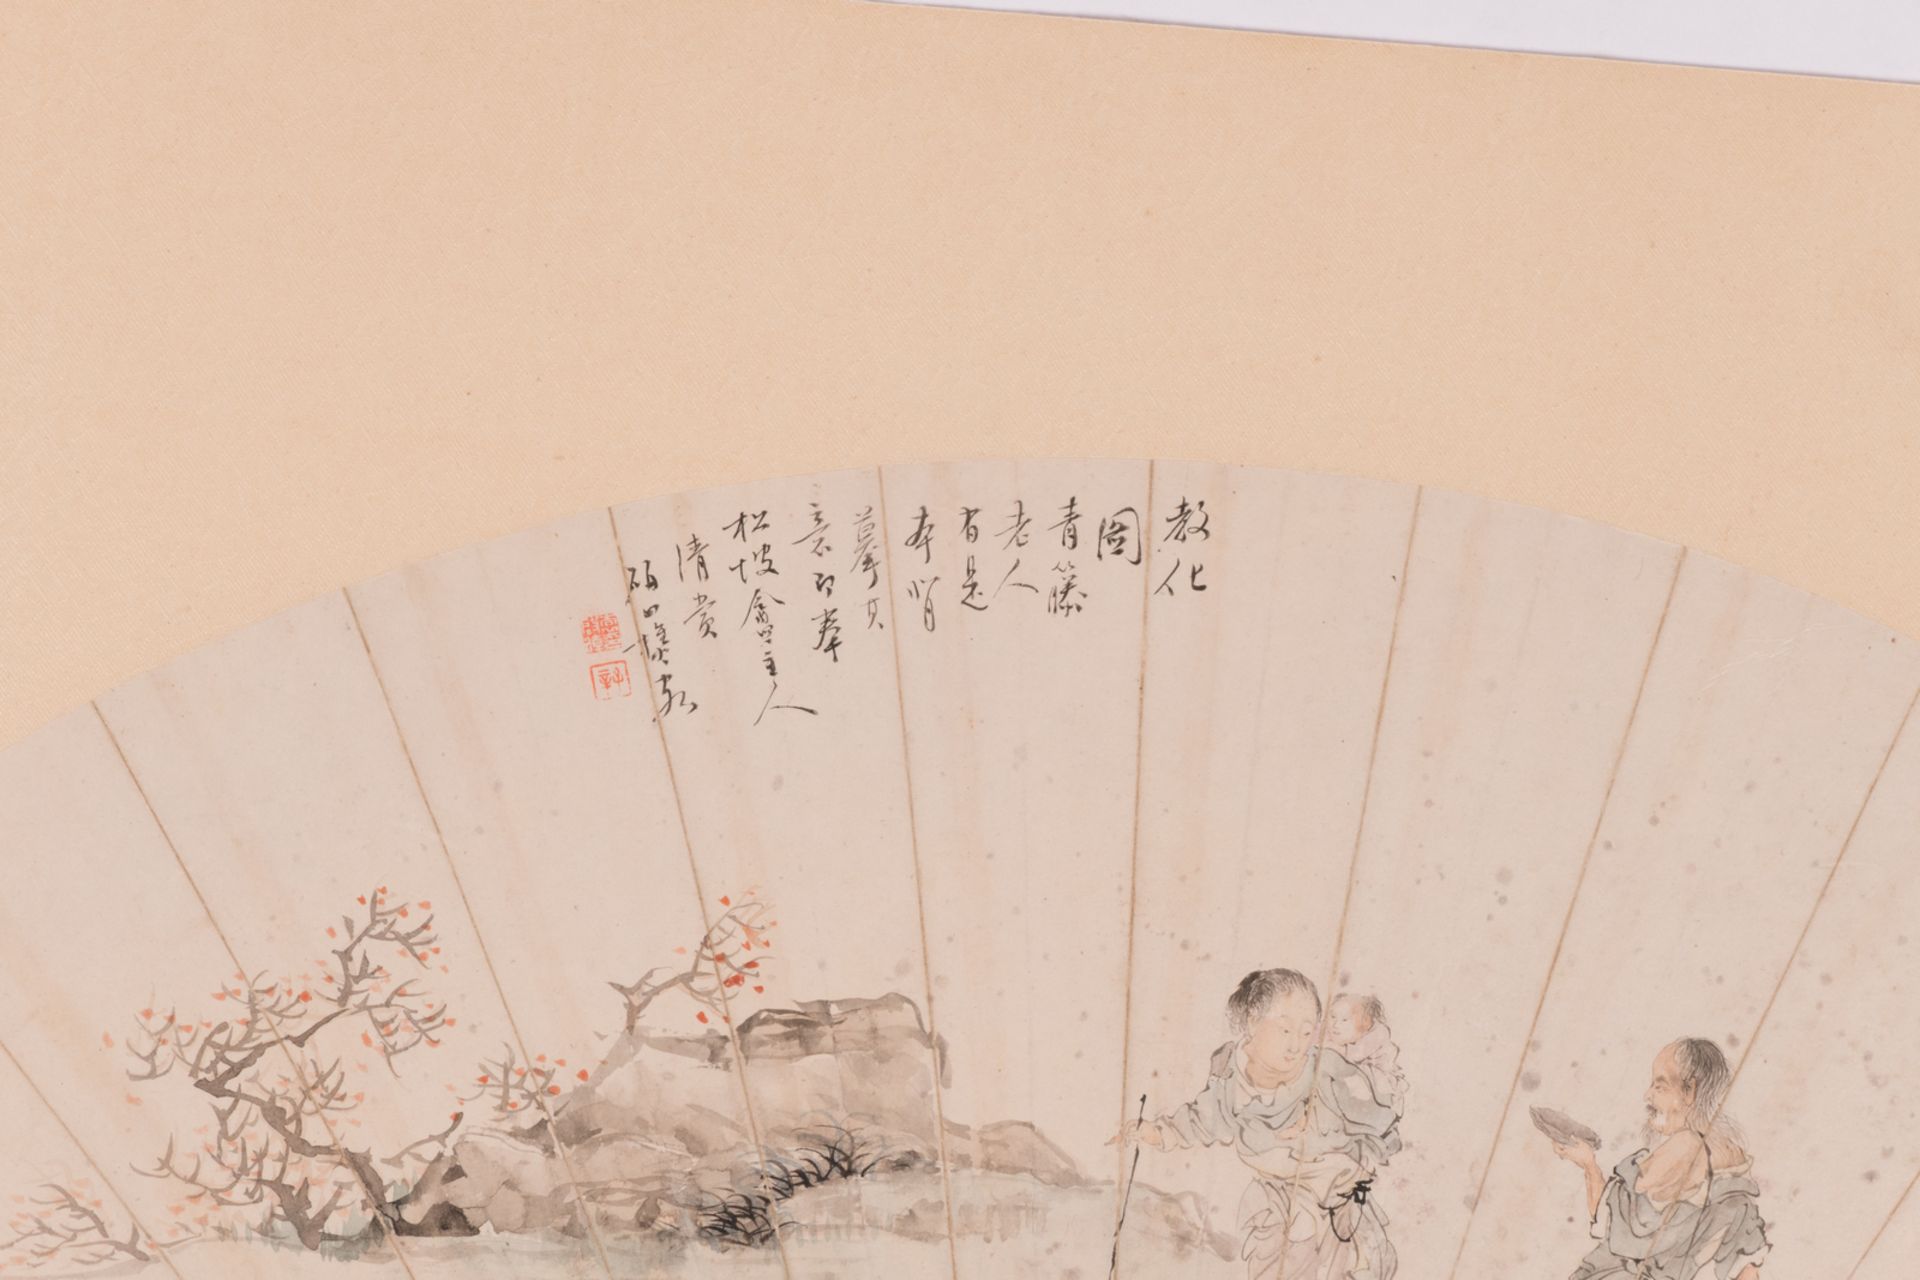 教化
圖
青藤
老人
有是
本
摹其
意即奉
松坡盦主人
清賞
硯田